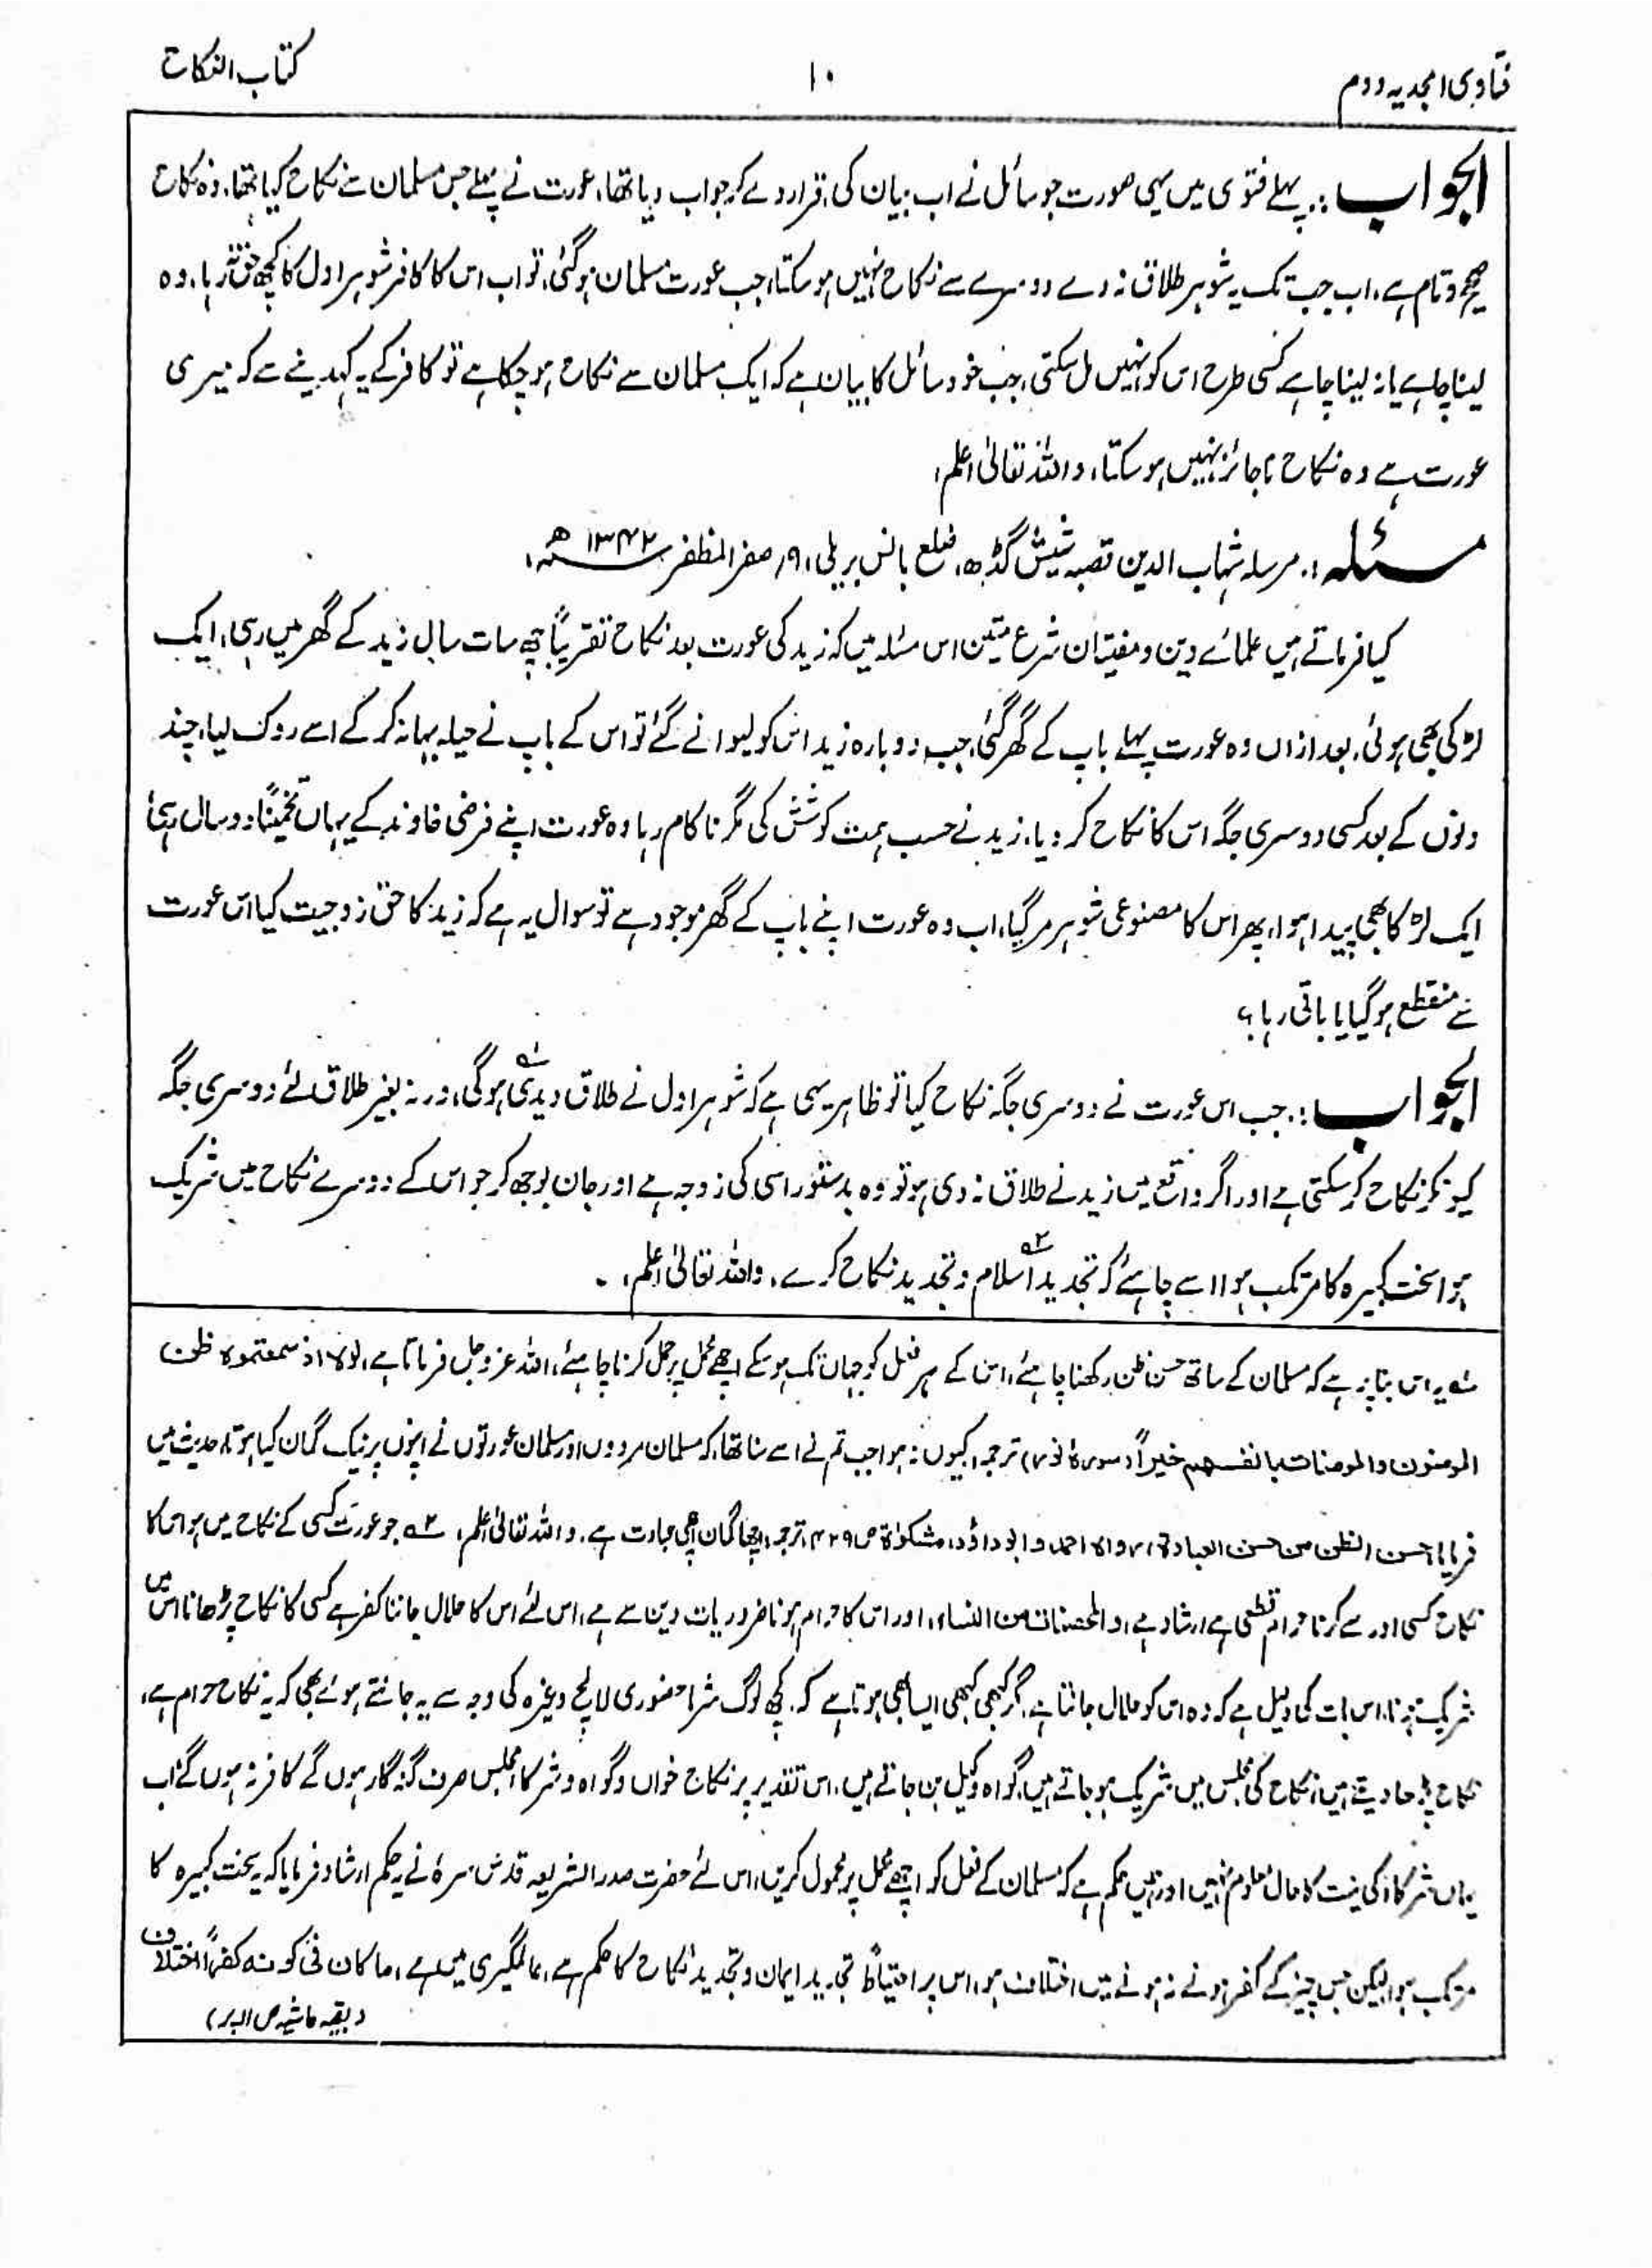 فتاوی امجدیہ دوم
۱۰
کتاب النکاح
الجواب :۔ پہلے فتوی میں یہی صورت جو سائل نے اب بیان کی، قرار دے کر جواب دیا تھا، عورت نے پہلے جس مسلمان سے نکاح کیا تھا، وہ نکاح
صحیح و تام ہے، اب جب تک یہ شوہر طلاق نہ دے دوسرے سے نکاح نہیں ہو سکتا، جب عورت مسلمان ہو گئی، تو اب اس کا کافر شوہر اول کا کچھ حق نہ رہا، وہ
لینا چاہے یا نہ لینا چاہے کسی طرح اس کو نہیں مل سکتی، جب خود سائل کا بیان ہے کہ ایک مسلمان سے نکاح ہو چکا ہے تو کافر کے یہ کہدینے سے کہ میری
عورت ہے وہ نکاح ناجائز نہیں ہو سکتا، واللہ تعالیٰ اعلم،
مسئلہ :۔ مرسلہ شہاب الدین قصبہ شیش گڈھ، ضلع بانس بریلی، ۹؍ صفر المظفر ۱۳۴۲ھ،
کیا فرماتے ہیں علمائے دین و مفتیان شرع متین اس مسئلہ میں کہ زید کی عورت بعد نکاح تقریباً چھ سات سال زید کے گھر میں رہی، ایک
لڑکی بھی ہوئی، بعد ازاں وہ عورت پہلے باپ کے گھر گئی، جب دوبارہ زید اس کو لیوانے گئے تو اس کے باپ نے حیلہ بہانہ کر کے اسے روک لیا، چند
دنوں کے بعد کسی دوسری جگہ اس کا نکاح کر دیا، زید نے حسب ہمت کوشش کی مگر ناکام رہا وہ عورت اپنے فرضی خاوند کے یہاں تخمیناً دو سال رہی
ایک لڑکا بھی پیدا ہوا، پھر اس کا مصنوعی شوہر مر گیا، اب وہ عورت اپنے باپ کے گھر موجود ہے تو سوال یہ ہے کہ زید کا حق زوجیت کیا اس عورت
سے منقطع ہو گیا یا باقی رہا؟
الجواب :۔ جب اس عورت نے دوسری جگہ نکاح کیا تو ظاہر یہی ہے کہ شوہر اول نے طلاق دیدی ۱ہ ہوگی، ورنہ بغیر طلاق لئے دوسری جگہ
کیونکر نکاح کر سکتی ہے اور اگر واقع میں زید نے طلاق نہ دی ہو تو وہ بدستور اسی کی زوجہ ہے اور جان بوجھ کر جو اس کے دوسرے نکاح میں شریک
ہوا سخت کبیرہ کا مرتکب ہوا اسے چاہئے کہ تجدید ۲ہ اسلام و تجدید نکاح کرے، واللہ تعالیٰ اعلم،
۱ہ یہ اس بنا پر ہے کہ مسلمان کے ساتھ حسن ظن رکھنا چاہئے، اس کے ہر فعل کو جہاں تک ہو سکے اچھے محمل پر حمل کرنا چاہئے، اللہ عزوجل فرماتا ہے، لولا اذ سمعتموہ ظن
المومنون والمومنات بانفسھم خیراً (سورۂ نور) ترجمہ، کیوں نہ ہوا جب تم نے اسے سنا تھا، کہ مسلمان مردوں اور مسلمان عورتوں نے اپنوں پر نیک گمان کیا ہوتا، حدیث میں
فرمایا، حسن الظن من حسن العبادۃ، رواہ احمد وابوداؤد، مشکوٰۃ ص ۴۲۹، ترجمہ، اچھا گمان اچھی عبادت ہے۔ واللہ تعالیٰ اعلم، ۲ہ جو عورت کسی کے نکاح میں ہو اس کا
نکاح کسی اور سے کرنا حرام قطعی ہے ارشاد ہے، والمحصنات من النساء، اور اس کا حرام ہونا ضروریات دین سے ہے، اس لئے اس کا حلال جاننا کفر ہے کسی کا نکاح پڑھانا اس میں
شریک ہونا، اس بات کی دلیل ہے کہ وہ اس کو حلال جانتا ہے، مگر کبھی کبھی ایسا بھی ہوتا ہے کہ کچھ لوگ شرما حضوری لالچ وغیرہ کی وجہ سے یہ جانتے ہوئے بھی کہ یہ نکاح حرام ہے،
نکاح پڑھا دیتے ہیں، نکاح کی مجلس میں شریک ہو جاتے ہیں، گواہ وکیل بن جاتے ہیں، اس تقدیر پر نکاح خواں و گواہ و شرکاء مجلس صرف گنہگار ہوں گے کافر نہ ہوں گے، اب
یہاں شرکاء کی نیت کا حال معلوم نہیں اور ہمیں حکم ہے کہ مسلمان کے فعل کو اچھے محمل پر محمول کریں، اس لئے حضرت صدر الشریعہ قدس سرہٗ نے یہ حکم ارشاد فرمایا کہ یہ سخت کبیرہ کا
مرتکب ہوا، لیکن جس چیز کے کفر ہونے نہ ہونے میں اختلاف ہو، اس پر احتیاطاً تجدید ایمان و تجدید نکاح کا حکم ہے، عالمگیری میں ہے، ما کان فی کونہ کفراً اختلاف
(بقیہ حاشیہ ص ۱۱ پر)